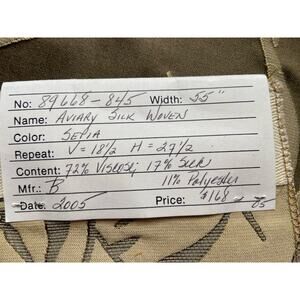 No: 89668-845 Width: 55"
Name: Aviary Silk Woven
Color: Sepia
Repeat: V = 18 1/2 H = 27 1/2
Content: 72% Viscose, 17% Silk
Mfr.: B 11% Polyester
Date: 2005 Price: $168